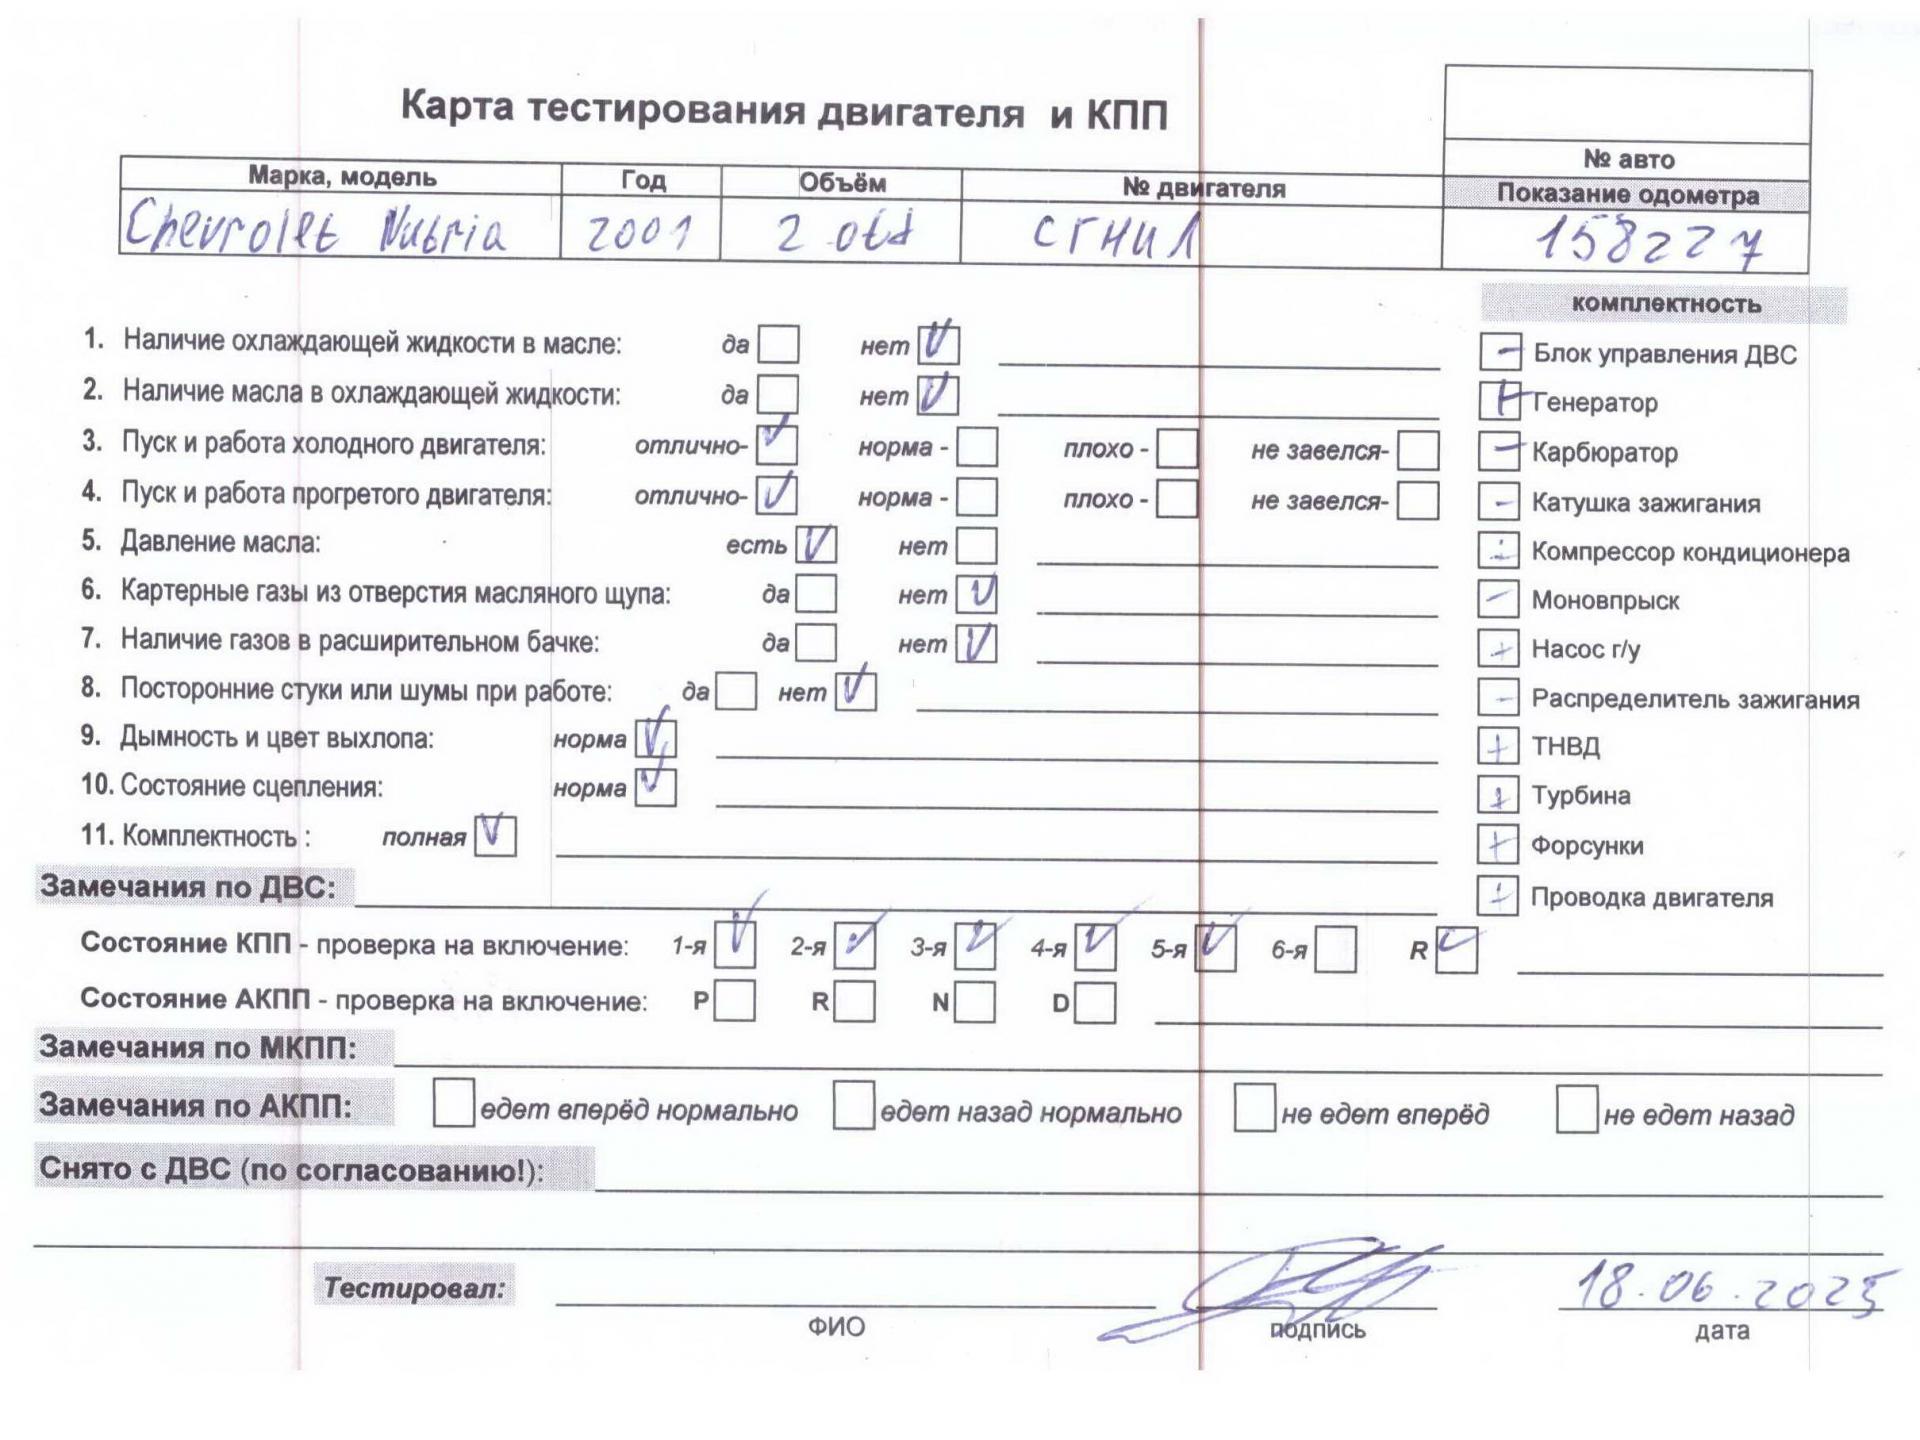 Карта тестирования двигателя и КПП
№ авто
Марка, модель Год Объём № двигателя Показание одометра
Chevrolet Nubria 2001 2 СГНИЛ 158227
комплектность
1. Наличие охлаждающей жидкости в масле: да нет V
2. Наличие масла в охлаждающей жидкости: да нет V
3. Пуск и работа холодного двигателя: отлично- V норма - плохо - не завелся-
4. Пуск и работа прогретого двигателя: отлично- V норма - плохо - не завелся-
5. Давление масла: есть V нет
6. Картерные газы из отверстия масляного щупа: да нет V
7. Наличие газов в расширительном бачке: да нет V
8. Посторонние стуки или шумы при работе: да нет V
9. Дымность и цвет выхлопа: норма V
10. Состояние сцепления: норма V
11. Комплектность : полная V
- Блок управления ДВС
+ Генератор
- Карбюратор
- Катушка зажигания
Компрессор кондиционера
- Моновпрыск
+ Насос г/у
- Распределитель зажигания
+ ТНВД
+ Турбина
+ Форсунки
+ Проводка двигателя
Замечания по ДВС:
Состояние КПП - проверка на включение: 1-я V 2-я V 3-я V 4-я V 5-я V 6-я R V
Состояние АКПП - проверка на включение: P R N D
Замечания по МКПП:
Замечания по АКПП: едет вперёд нормально едет назад нормально не едет вперёд не едет назад
Снято с ДВС (по согласованию!):
Тестировал: 18.06.2025
ФИО подпись дата